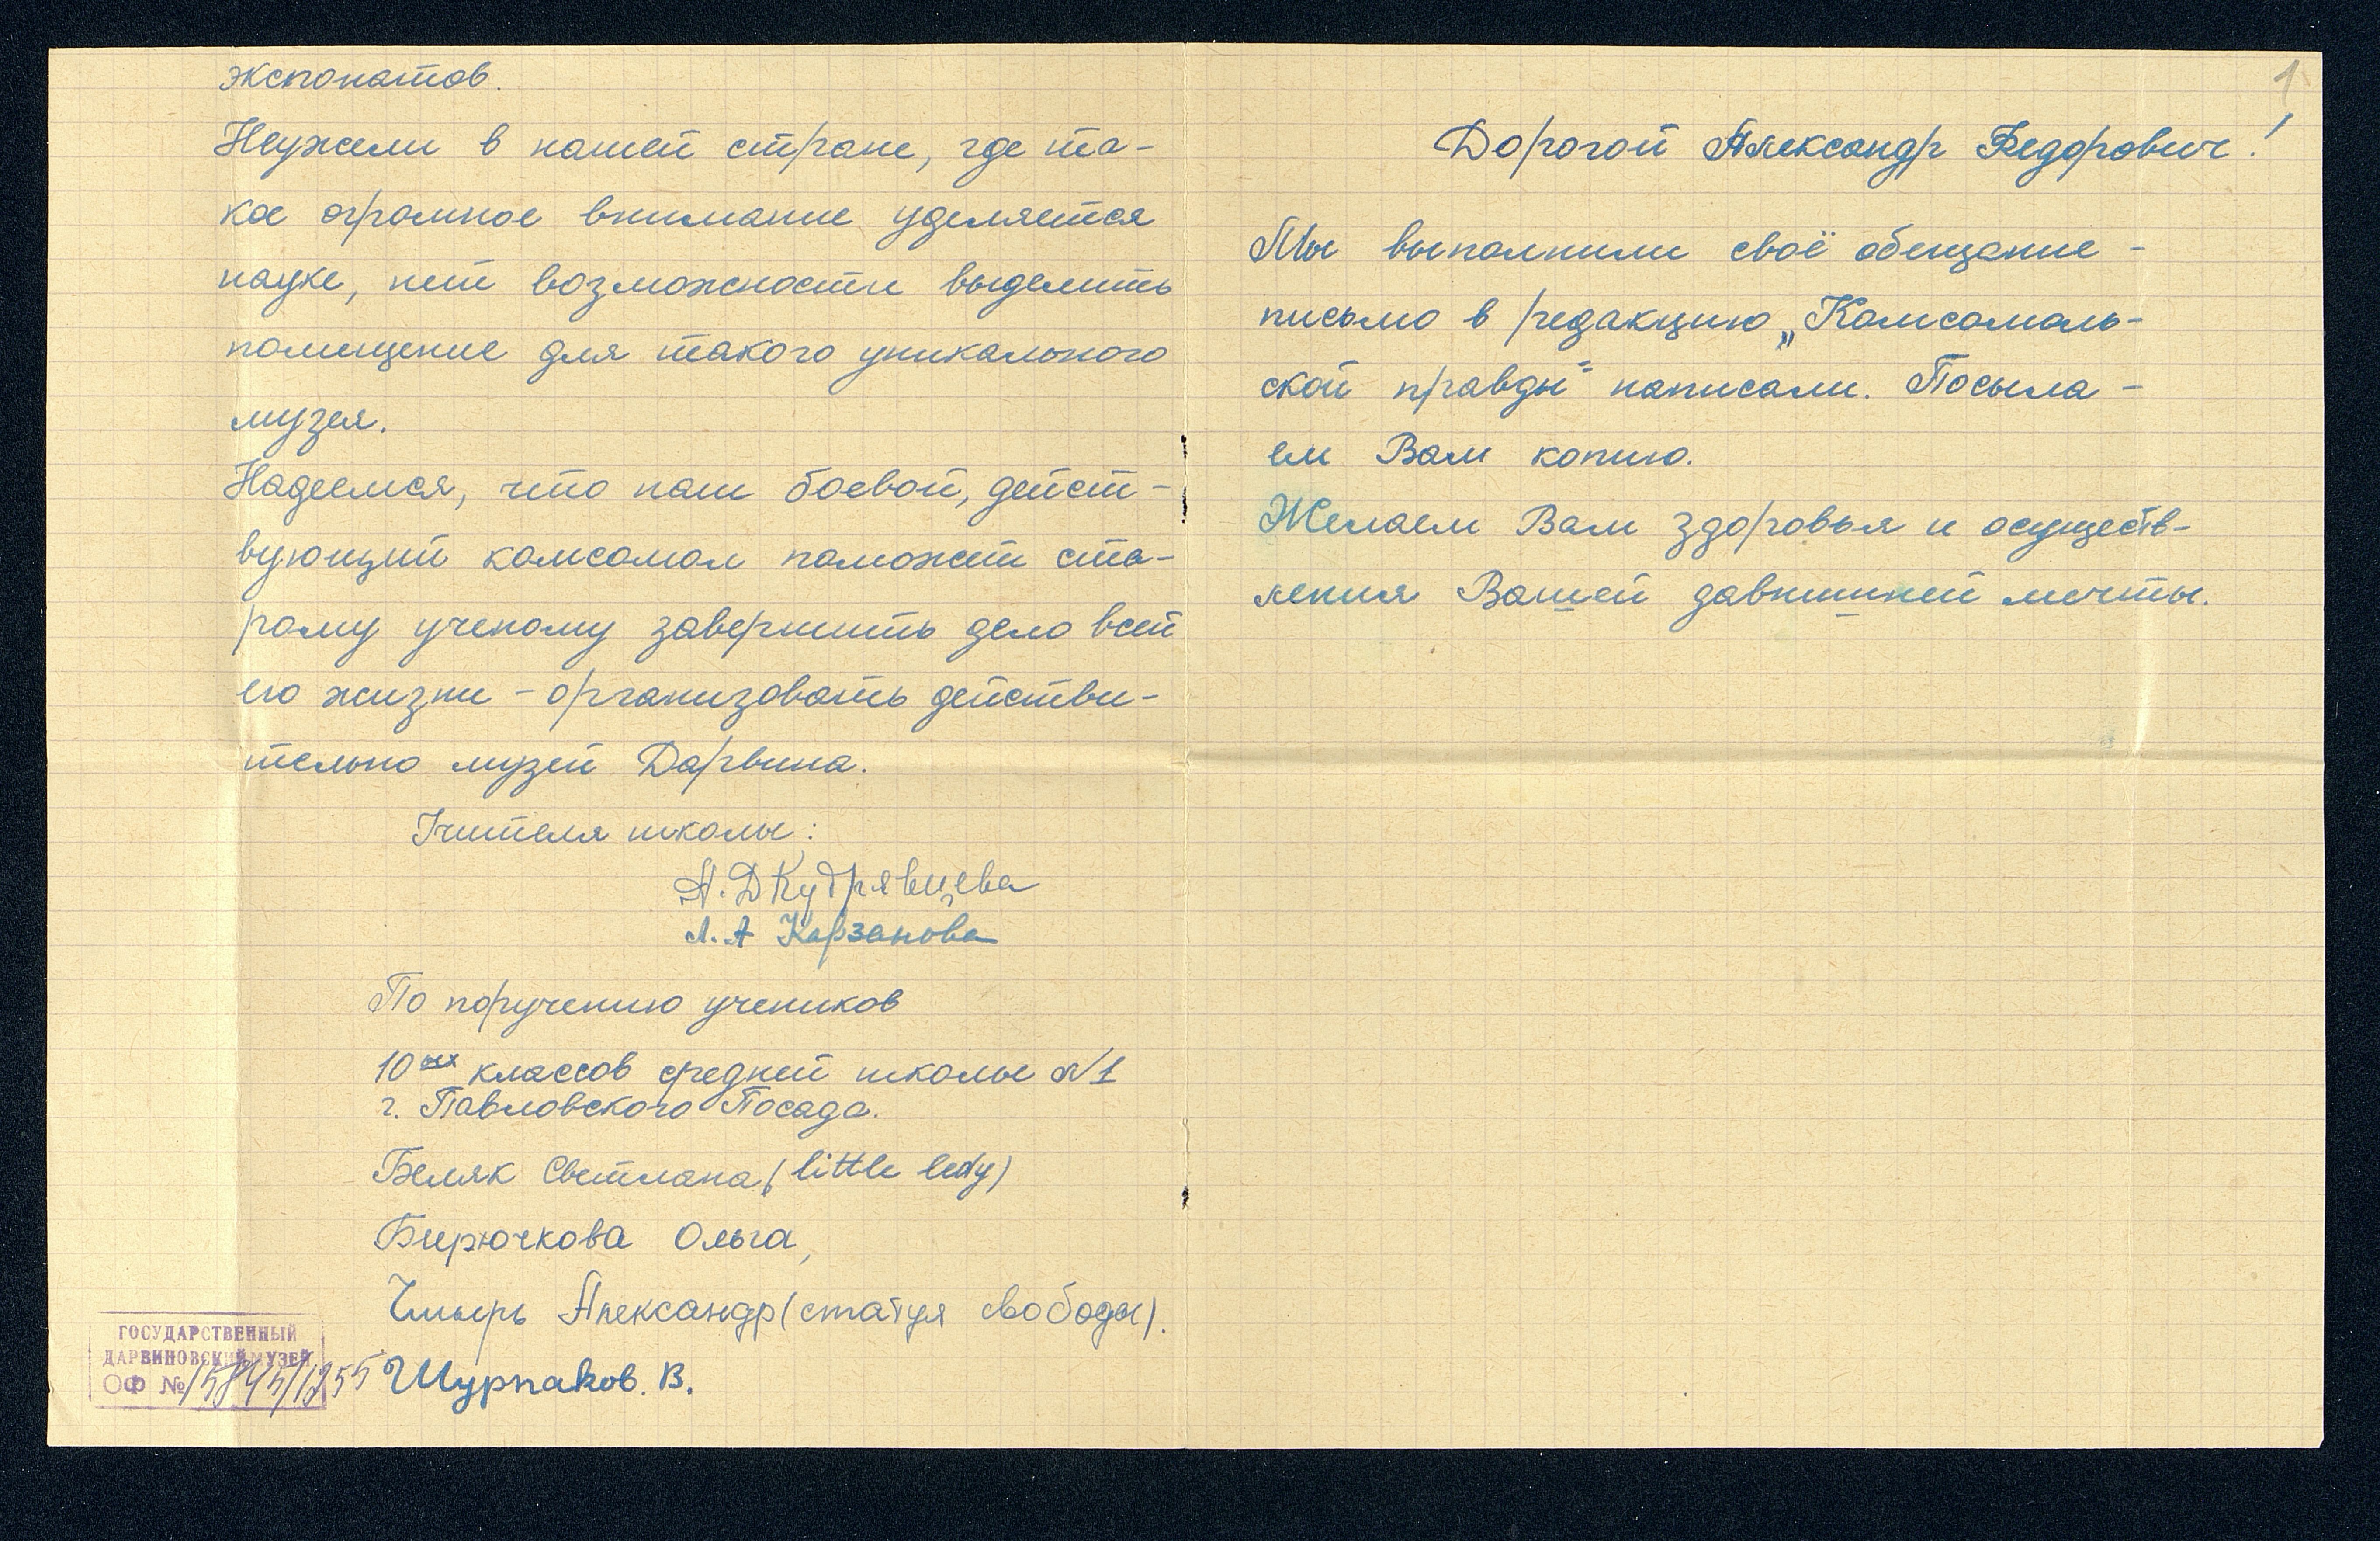 экспонатов.
Неужели в нашей стране, где та-
кое огромное внимание уделяется
науке, нет возможности выделить
помещение для такого уникального
музея.
Надеемся, что наш боевой, дейст-
вующий комсомол поможет ста-
рому ученому завершить дело всей
его жизни - организовать действи-
тельно музей Дарвина.
Учителя школы:
А.Д Кудрявцева
Л.А Карзанова
По поручению учеников
10ых классов средней школы N1
г. Павловского Посада.
Беляк Светлана (little ledy)
Бирючкова Ольга,
Чмырь Александр (статуя свободы).
Шурпаков. В.
ГОСУДАРСТВЕННЫЙ
ДАРВИНОВСКИЙ МУЗЕЙ
ОФ №
1
Дорогой Александр Федорович!
Мы выполнили своё обещание -
письмо в редакцию „Комсомоль-
ской правды" написали. Посыла-
ем Вам копию.
Желаем Вам здоровья и осуществ-
ления Вашей давнишней мечты.